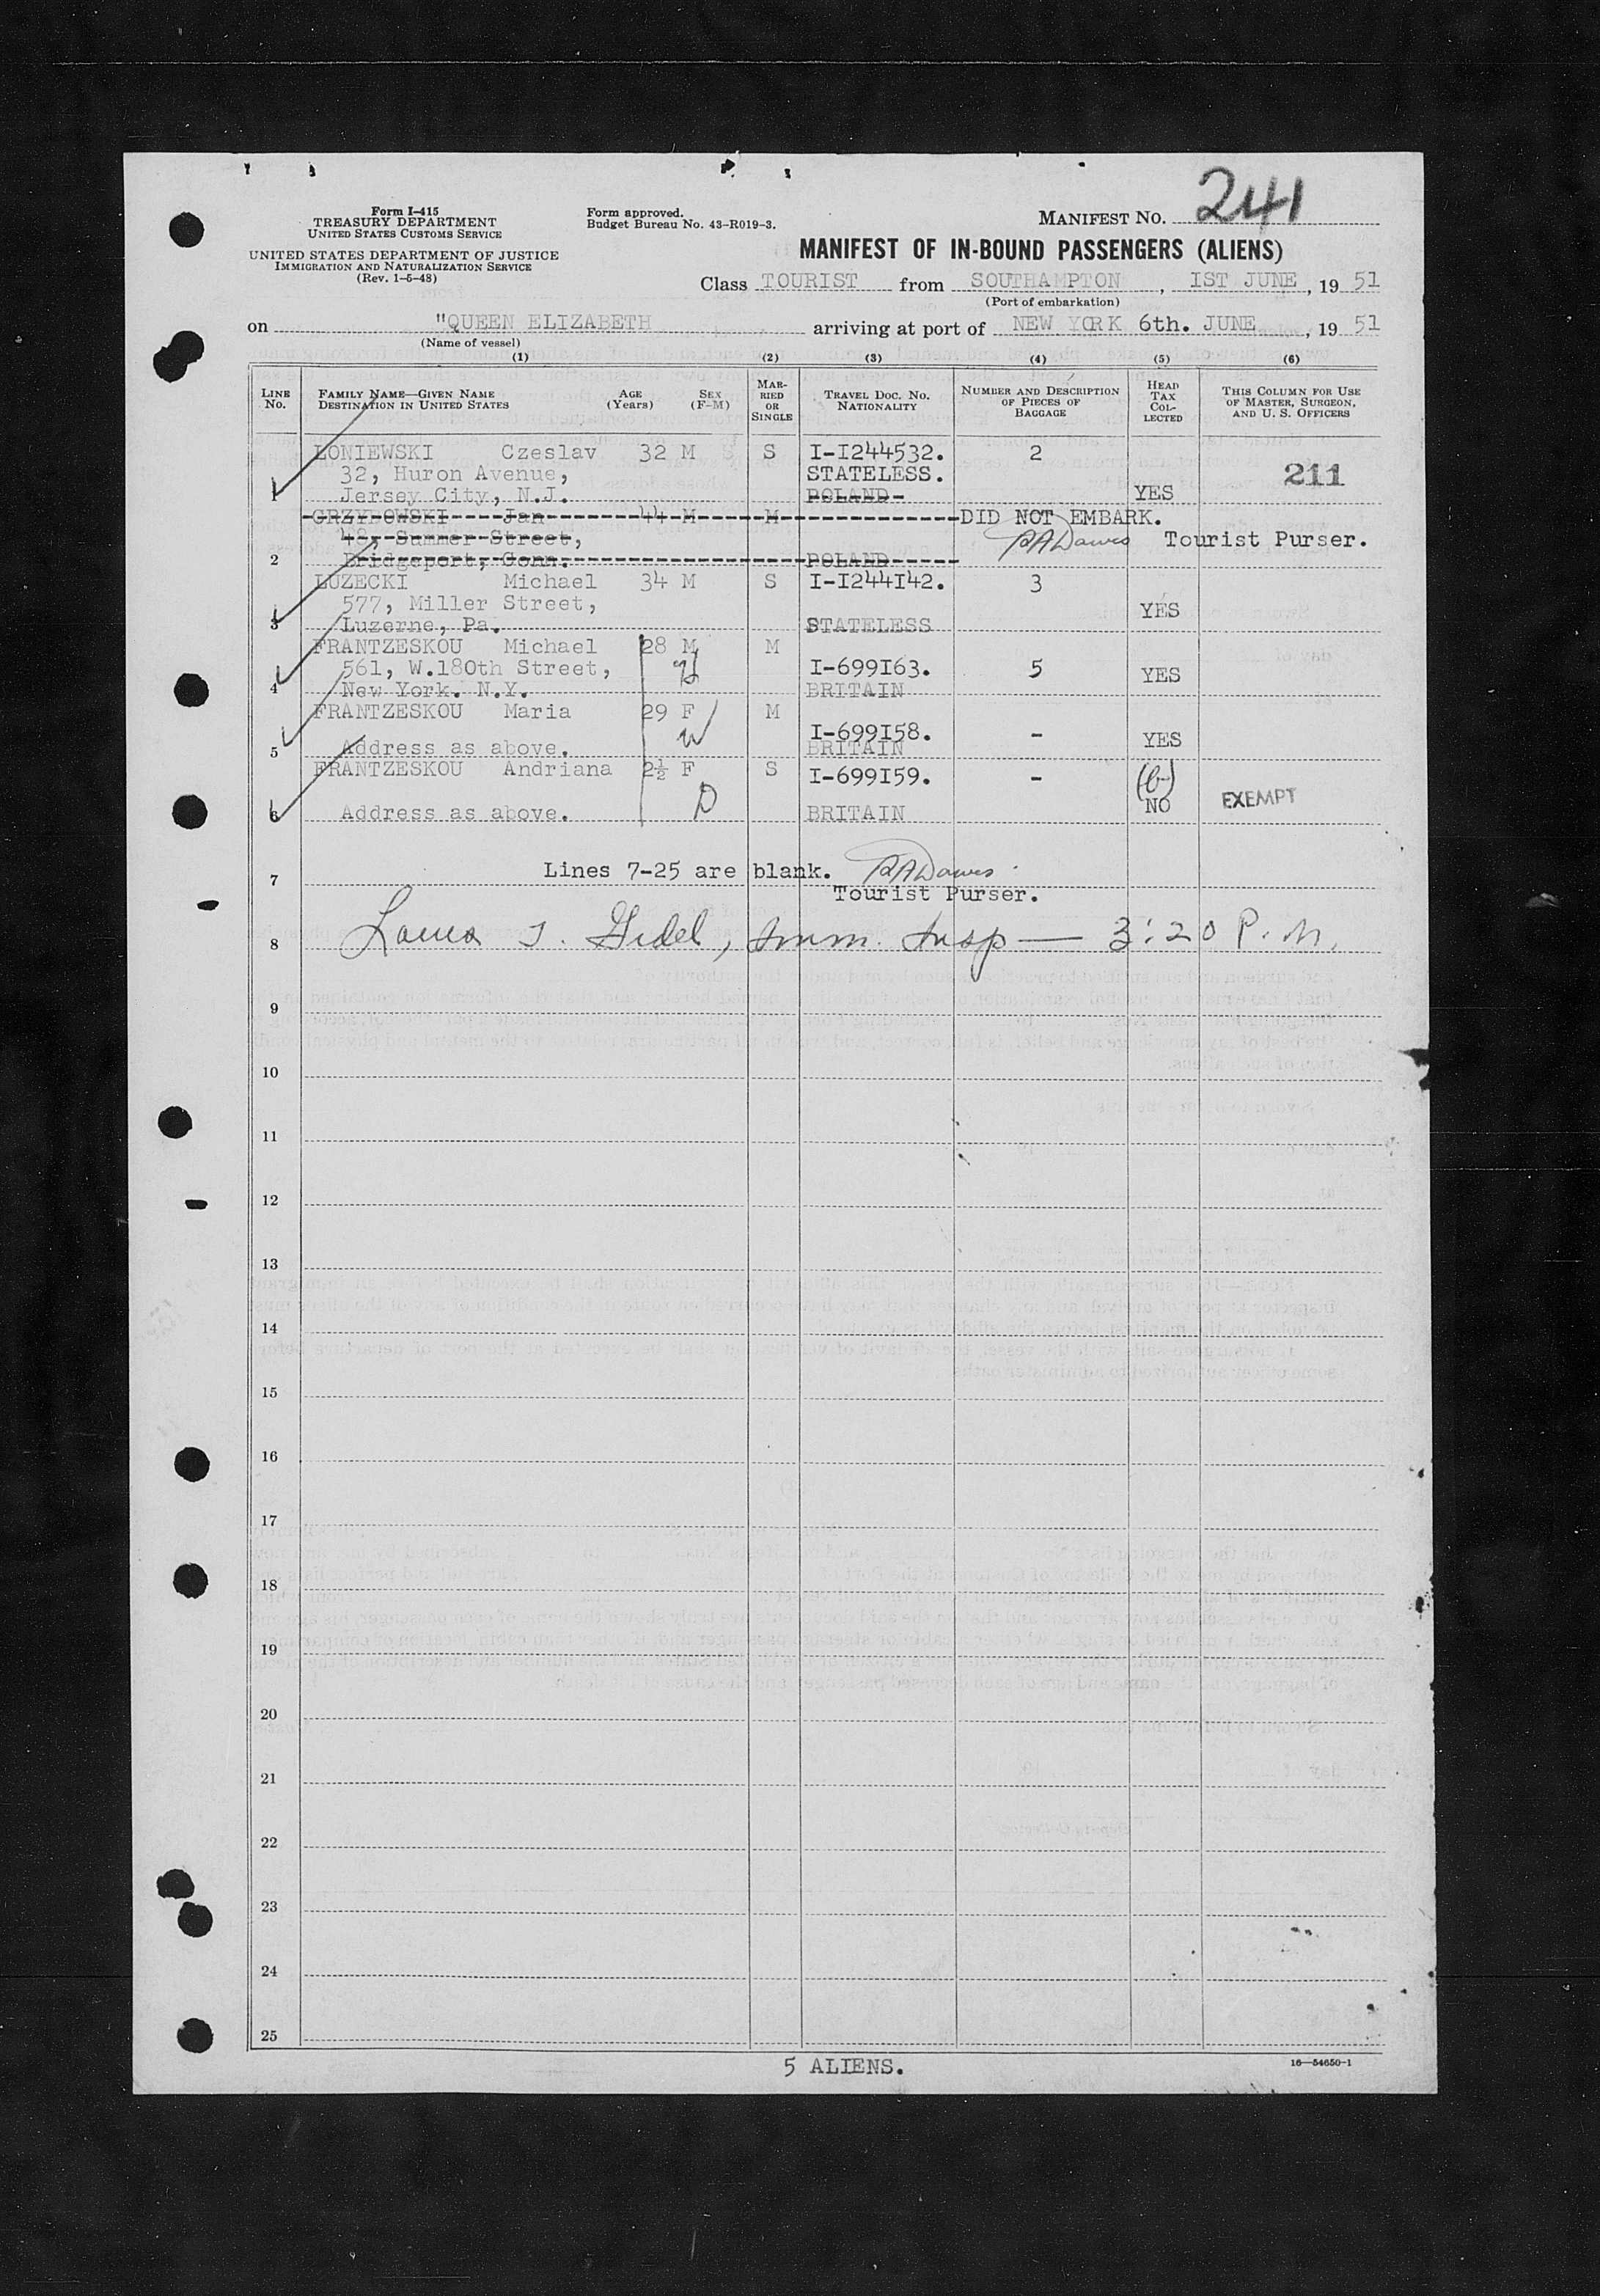 Form I-415
TREASURY DEPARTMENT
UNITED STATES CUSTOMS SERVICE
UNITED STATES DEPARTMENT OF JUSTICE
IMMIGRATION AND NATURALIZATION SERVICE
(Rev. 1-5-48)
Form approved.
Budget Bureau No. 43-R019-3.
MANIFEST NO. 241
MANIFEST OF IN-BOUND PASSENGERS (ALIENS)
Class TOURIST from SOUTHAMPTON, 1ST JUNE, 19 51
(Port of embarkation)
on "QUEEN ELIZABETH arriving at port of NEW YORK 6th. JUNE, 19 51
(Name of vessel)
(1) (2) (3) (4) (5) (6)
LINE No. FAMILY NAME—GIVEN NAME DESTINATION IN UNITED STATES AGE (Years) SEX (F-M) MARRIED OR SINGLE TRAVEL DOC. NO. NATIONALITY NUMBER AND DESCRIPTION OF PIECES OF BAGGAGE HEAD TAX COLLECTED THIS COLUMN FOR USE OF MASTER, SURGEON, AND U. S. OFFICERS
LONIEWSKI Czeslav 32 M S I-I244532. 2
32, Huron Avenue, STATELESS. 211
1 Jersey City, N.J. POLAND YES
GRZYBOWSKI Jan 44 M M DID NOT EMBARK.
48, Summer Street, RADawes Tourist Purser.
2 Bridgeport, Conn. POLAND
LUZECKI Michael 34 M S I-I244I42. 3
577, Miller Street, YES
3 Luzerne, Pa. STATELESS
FRANTZESKOU Michael 28 M M
561, W.180th Street, H I-699I63. 5 YES
4 New York. N.Y. BRITAIN
FRANTZESKOU Maria 29 F M
W I-699I58. - YES
5 Address as above. BRITAIN
FRANTZESKOU Andriana 2½ F S I-699I59. - (6)
D NO EXEMPT
6 Address as above. BRITAIN
7 Lines 7-25 are blank. RADawes
Tourist Purser.
8 Louis J. Gidel, Imm. Insp — 3:20 P.M.
9
10
11
12
13
14
15
16
17
18
19
20
21
22
23
24
25
5 ALIENS.
16—54650-1